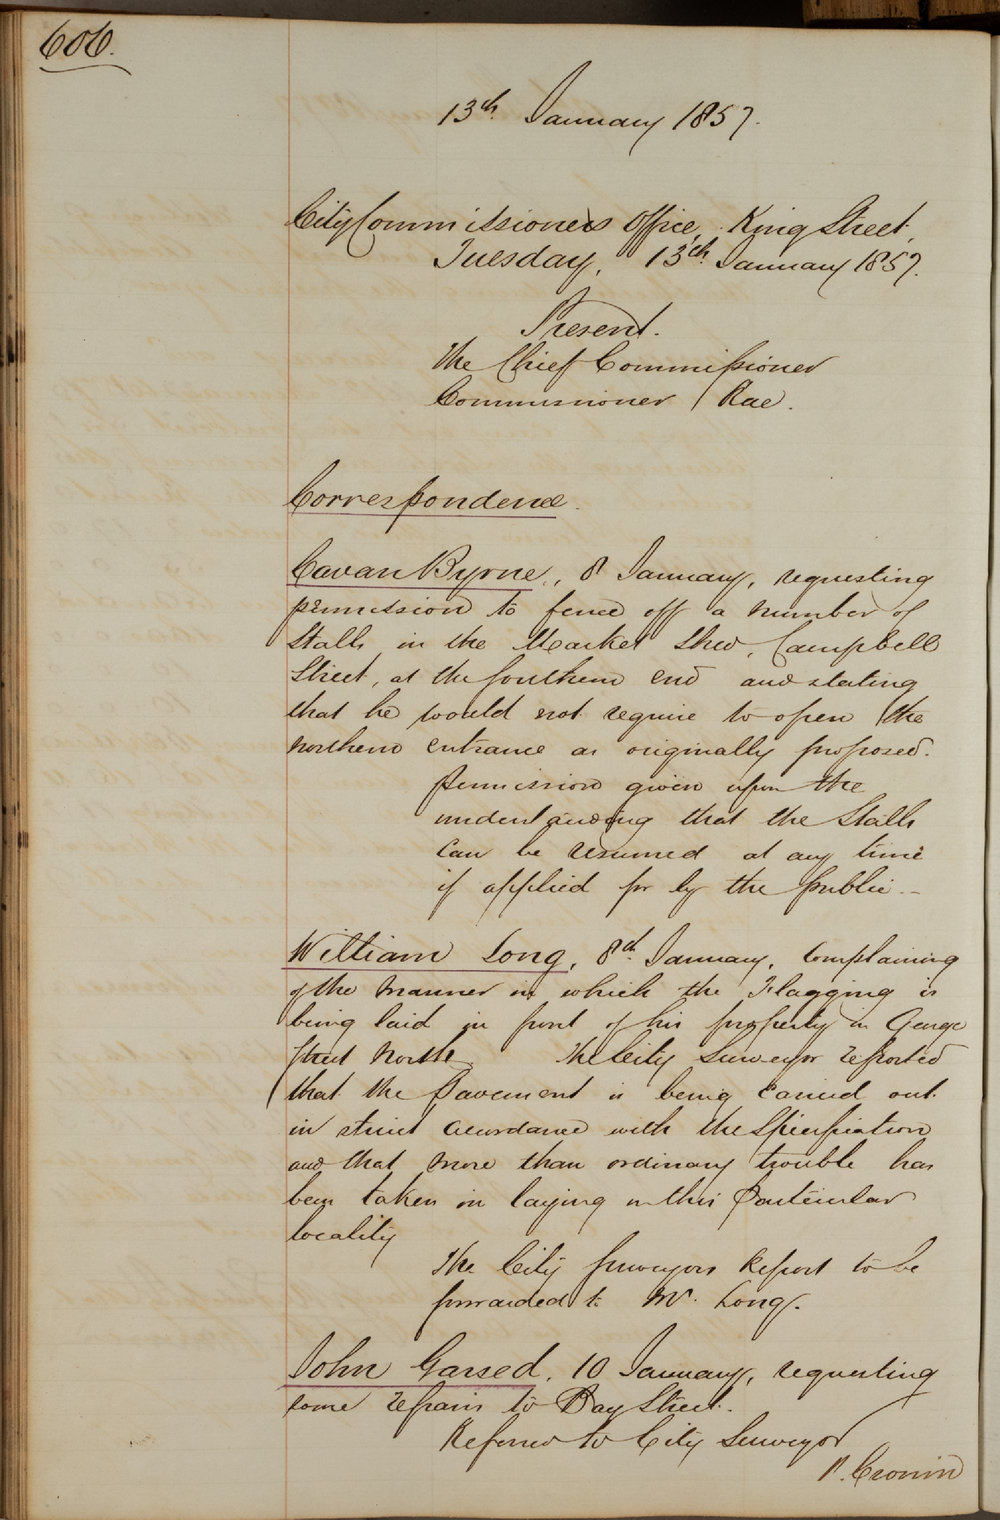 606.
13th January 1857.
City Commissioners Office, King Street,
Tuesday, 13th January 1857.
Present.
The Chief Commissioner
Commissioner Rae.
Correspondence.
Cavan Byrne, 8 January, requesting
permission to fence off a number of
Stalls in the Market Shed, Campbell
Street, at the Southern end and stating
that he would not require to open the
northern entrance as originally proposed.
Permission given upon the
understanding that the Stalls
can be resumed at any time
if applied for by the public.
William Long, 8th January, complaining
of the manner in which the Flagging is
being laid in front of his property in George
Street North. The City Surveyor reported
that the pavement is being carried out
in strict accordance with the Specification
and that more than ordinary trouble has
been taken in laying in this particular
locality
The City Surveyors Report to be
forwarded to Mr. Long.
John Garsed, 10 January, requesting
some repairs to Bay Street.
Referred to City Surveyor
P. Cronin